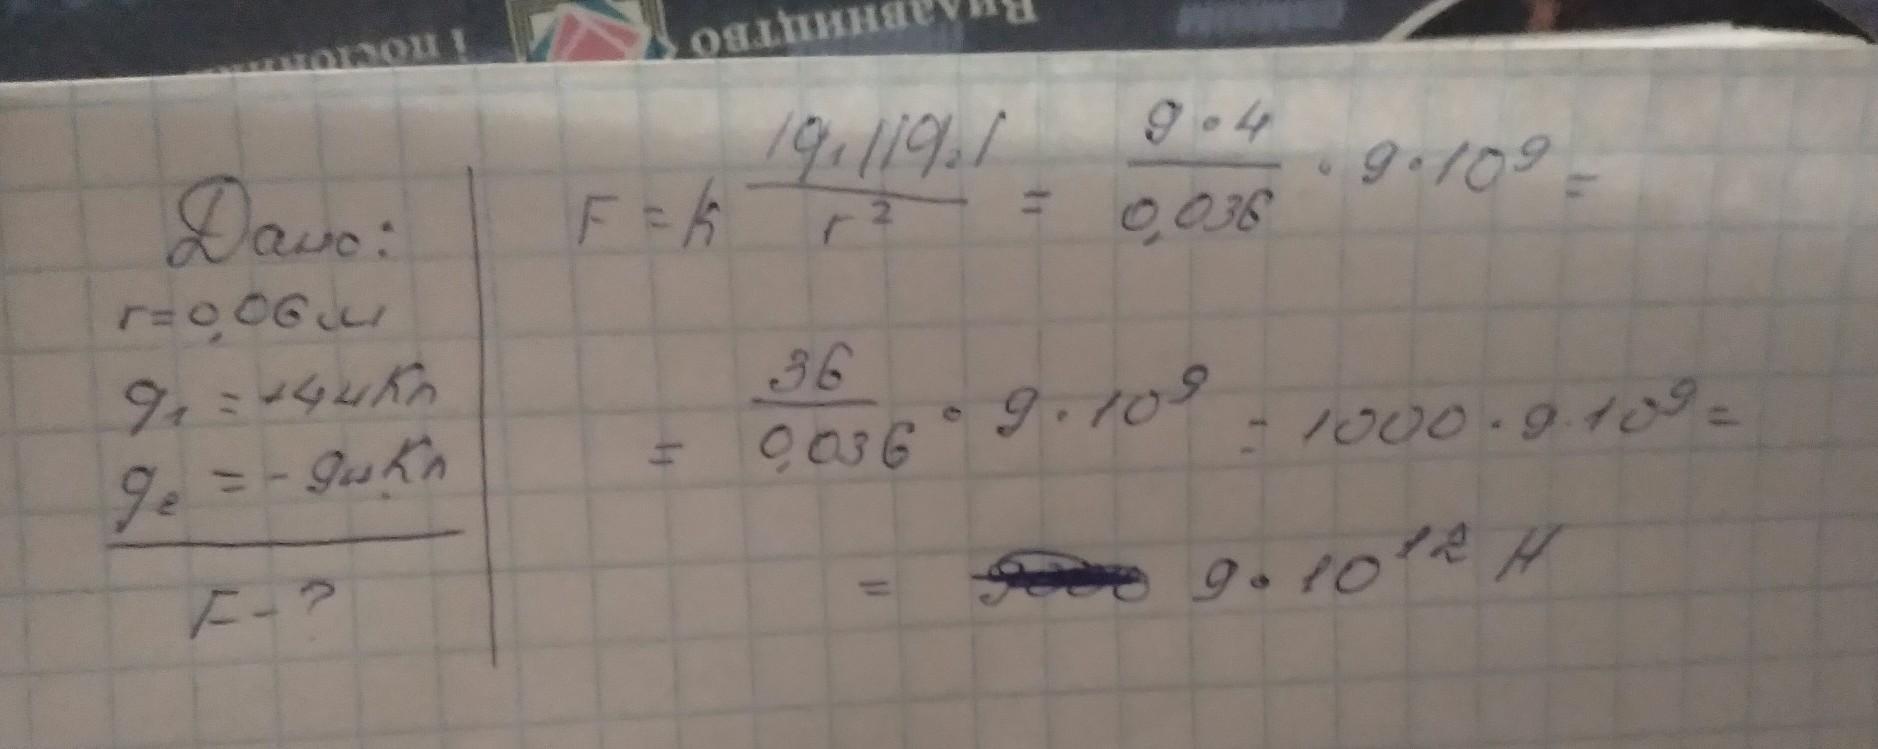 Видавництво
Дано:
r=0,06м
q₁ = +4нКл
q₂ = -9нКл
F - ?
F = k |q₁||q₂| / r² = 9·4 / 0,036 · 9·10⁹ =
= 36 / 0,036 · 9·10⁹ = 1000·9·10⁹ =
= 9·10¹² Н